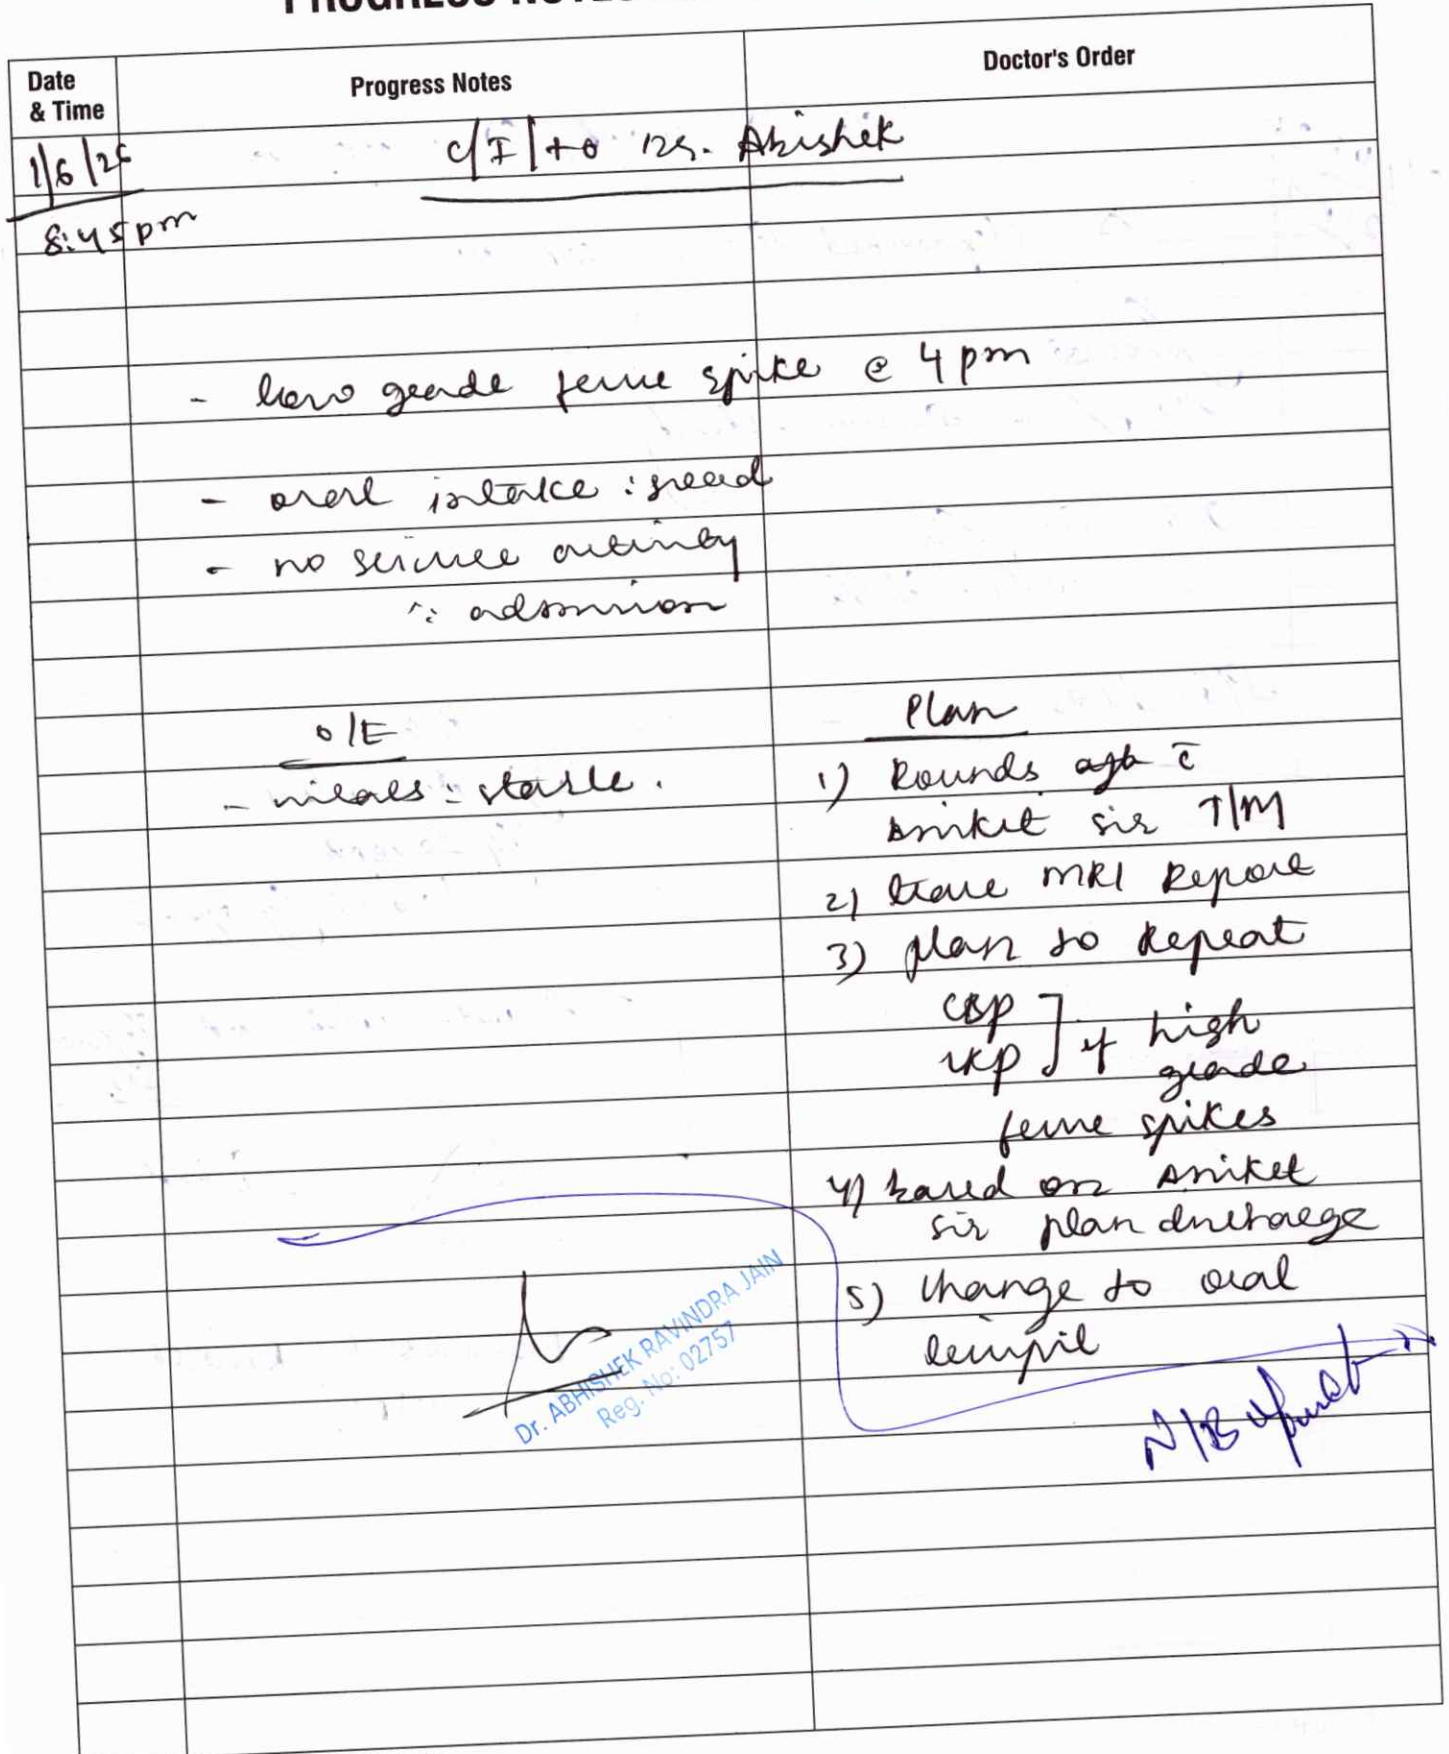 PROGRESS NOTES
Date & Time
Progress Notes
Doctor's Order
1/6/25
8:45 pm
C/I/to Dr. Abishek
- low grade fever spike @ 4 pm
- oral intake : good
- no seizure activity
∵ admission
O/E
- vitals : stable.
Plan
1) Rounds c̄
Aniket sir T/M
2) trace MRI Report
3) plan to Repeat
CBP
CRP ] if high
grade
fever spikes
4) based on Aniket
sir plan discharge
5) change to oral
levipil
Dr. ABHISHEK RAVINDRA JAIN
Reg. No: 02757
N/B